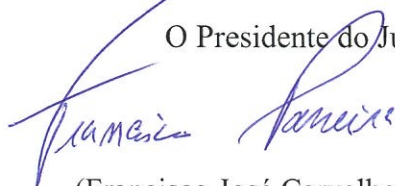 O Presidente do Ju
Francisco
(Francisco José Carvalho